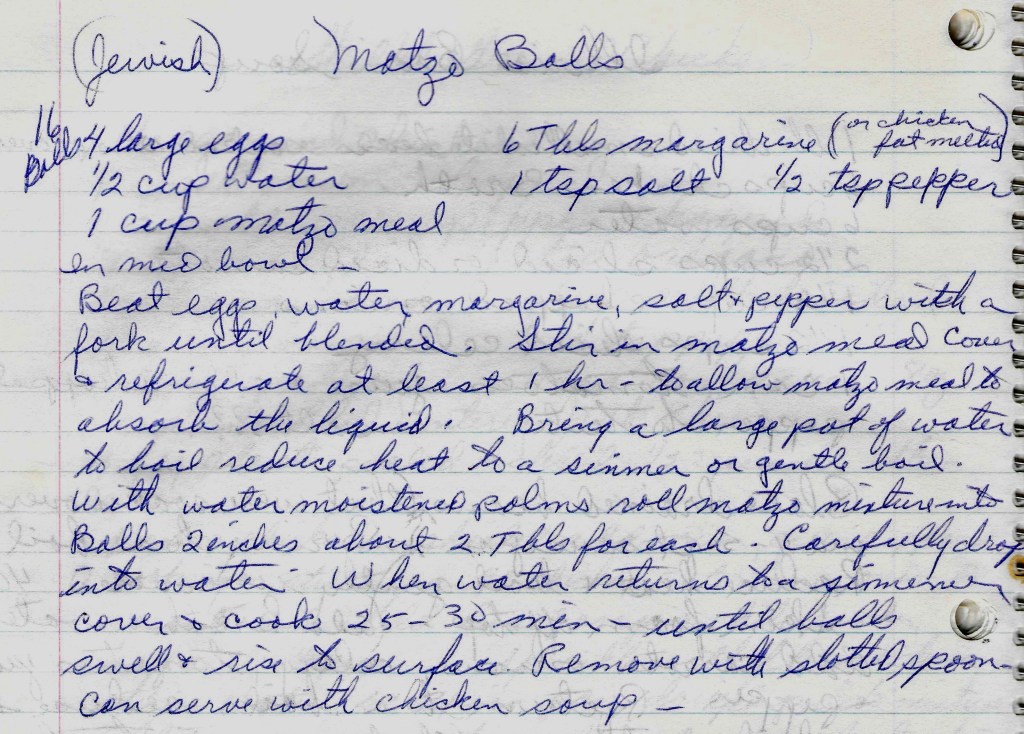 (Jewish) Matzo Balls
16 Balls
4 large eggs 6 Tbls margarine (or chicken fat melted)
1/2 cup water 1 tsp salt 1/2 tsp pepper
1 cup matzo meal
in med bowl –
Beat eggs, water, margarine, salt + pepper with a
fork until blended. Stir in matzo meal Cover
+ refrigerate at least 1 hr – to allow matzo meal to
absorb the liquid. Bring a large pot of water
to boil reduce heat to a simmer or gentle boil.
With water moistened palms roll matzo mixture into
Balls 2 inches about 2 Tbls for each. Carefully drop
into water. When water returns to a simmer
cover + cook 25–30 min – until balls
swell + rise to surface. Remove with slotted spoon –
Can serve with chicken soup –